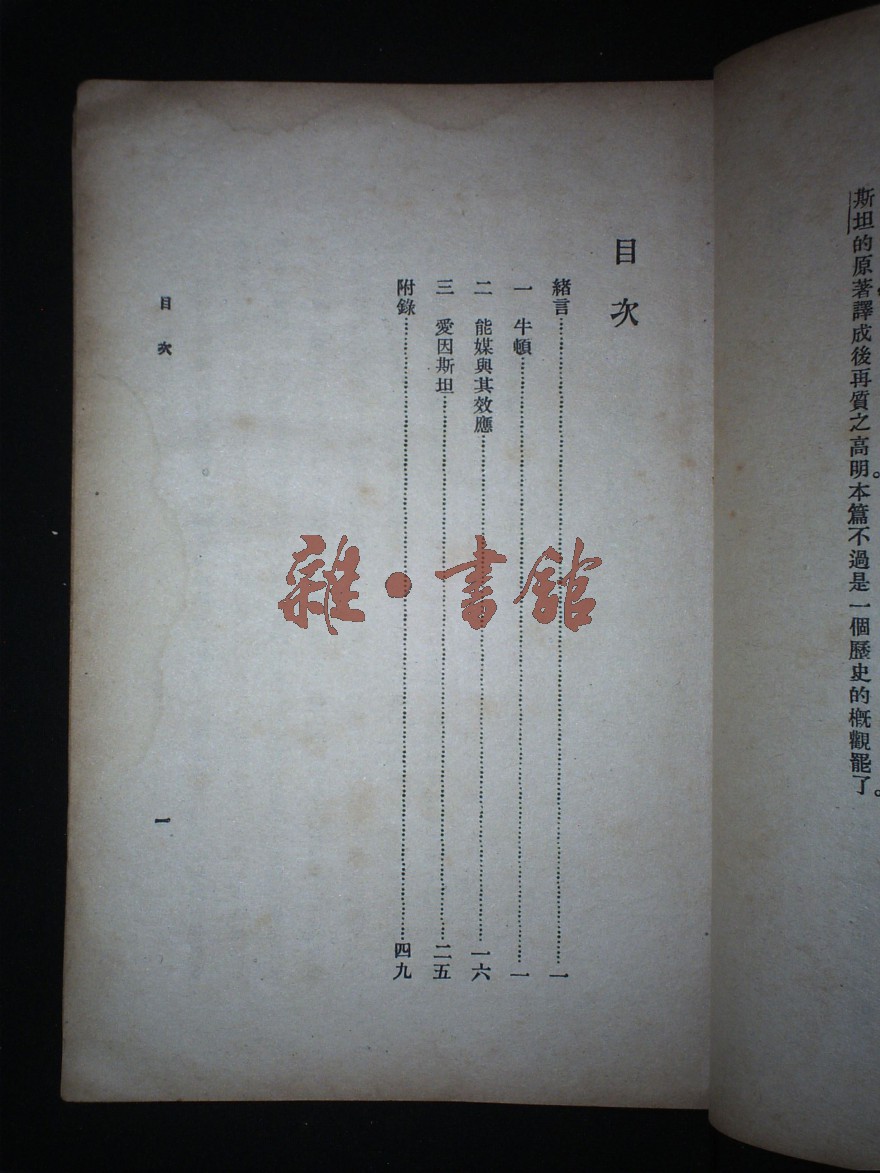 斯坦的原著譯成後再質之高明。本篇不過是一個歷史的概觀罷了。
目次
緒言……一
一 牛頓……一
二 能媒與其效應……一六
三 愛因斯坦……二五
附錄……四九
目次 一
雜·書館